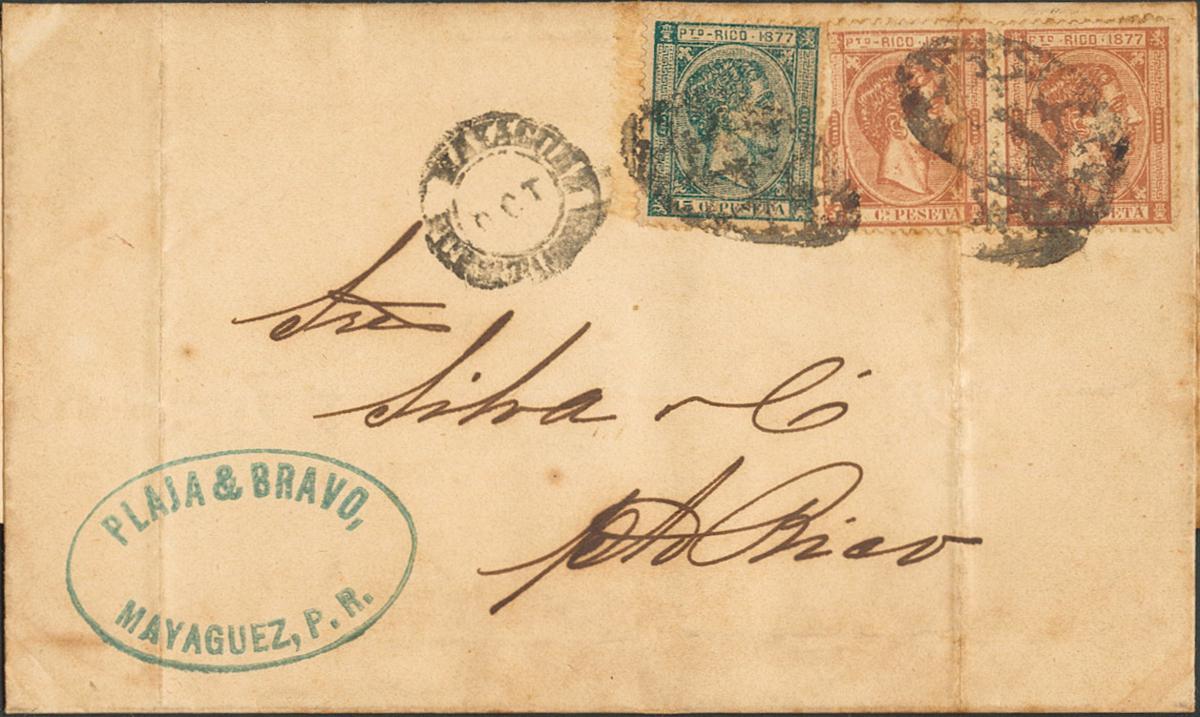 PTO-RICO·1877
15 CS PESETA
PTO-RICO·1877
CS PESETA
PTO-RICO·1877
PESETA
MAYAGUEZ
OCT
Sres
Silva y Cª
Pto Rico
PLAJA & BRAVO,
MAYAGUEZ, P. R.